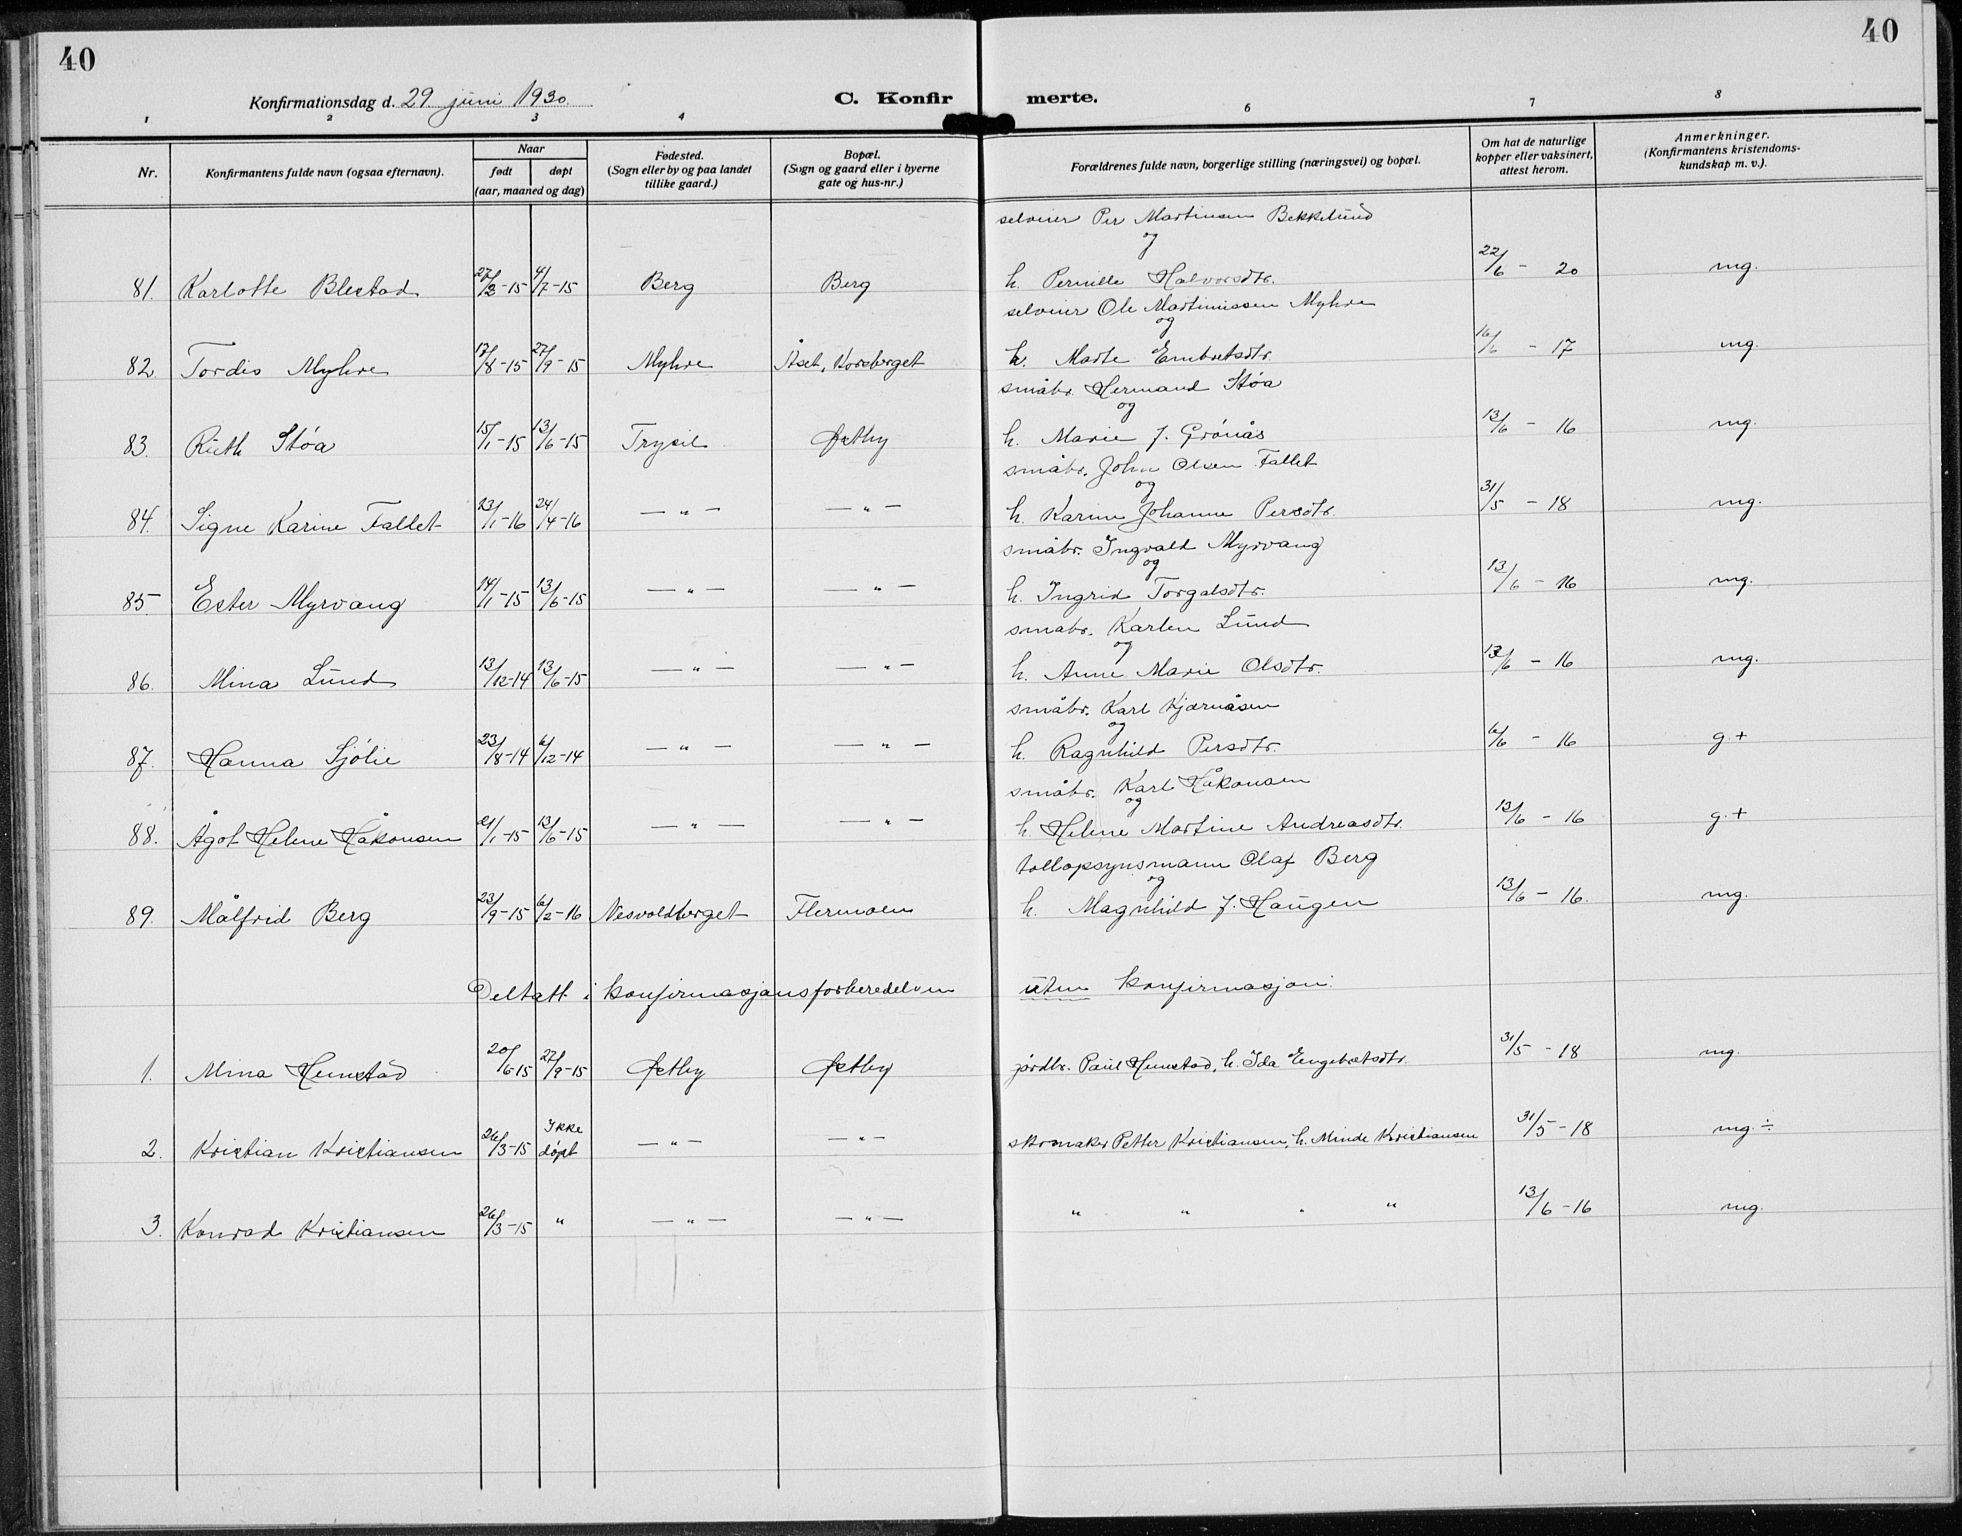 40
40
Konfirmationsdag d. 29 juni 1930.
C. Konfirmerte.
1 2 3 4 6 7 8
Nr.
Konfirmantens fulde navn (ogsaa efternavn).
Naar
født døpt
(aar, maaned og dag)
Fødested.
(Sogn eller by og paa landet
tillike gaard.)
Bopæl.
(Sogn og gaard eller i byerne
gate og hus-nr.)
Forældrenes fulde navn, borgerlige stilling (næringsvei) og bopæl.
Om hat de naturlige
kopper eller vaksinert,
attest herom.
Anmerkninger.
(Konfirmantens kristendoms-
kundskap m. v.).
selveier Per Martinsen Bekkelund
og
81. Karlotte Blestad 27/3-15 4/7-15 Berg Berg h. Pernille Halvorsdtr. 22/6 - 20 mg.
selveier Ole Martiniussen Myhre
og
82. Tordis Myhre 17/8-15 27/9-15 Myhre Åset, Korsberget h. Marte Embretsdtr. 16/6 - 17 mg.
småbr. Hermand Støa
og
83. Ruth Støa 15/1-15 13/6-15 Trysil Østby h. Marie J. Grønås 13/6 - 16 mg.
småbr. John Olsen Fallet
og
84. Signe Karine Fallet 23/1-16 24/4-16 — " — — " — h. Karine Johanne Persdtr. 31/5 - 18 mg.
småbr. Ingvald Myrvang
og
85 Ester Myrvang 14/1-15 13/6-15 — " — — " — h. Ingrid Torgalsdtr. 13/6 - 16 mg.
småbr. Karlen Lund
og
86. Mina Lund 13/12-14 13/6-15 — " — — " — h. Anne Marie Olsdtr. 13/6 - 16 mg.
småbr. Karl Kjærnåsen
og
87. Hanna Sjølie 23/8-14 6/12-14 — " — — " — h. Ragnhild Persdtr. 6/6 - 16 g +
småbr. Karl Håkonsen
og
88. Ågot Helene Håkonsen 21/1-15 13/6-15 — " — — " — h. Helene Martine Andreasdtr. 13/6 - 16 g. +
tollopsynsmann Olaf Berg
og
89. Målfrid Berg 23/9-15 6/2-16 Nesvoldberget Flermoen h. Magnhild J. Haugen 13/6 - 16. mg.
Deltatt i konfirmasjonsforberedelsen uten konfirmasjon.
1. Mina Hemstad 20/6-15 27/9-15 Østby Østby jordbr. Paul Hemstad, h. Ida Engebretsdtr. 31/5 - 18 mg.
2. Kristian Kristiansen 26/3-15 Ikke døpt — " — — " — skomaker Petter Kristiansen, h. Minda Kristiansen 31/5 - 18 mg ÷
3. Konrad Kristiansen 26/3-15 " — " — — " — " " " " 13/6 - 16 mg.